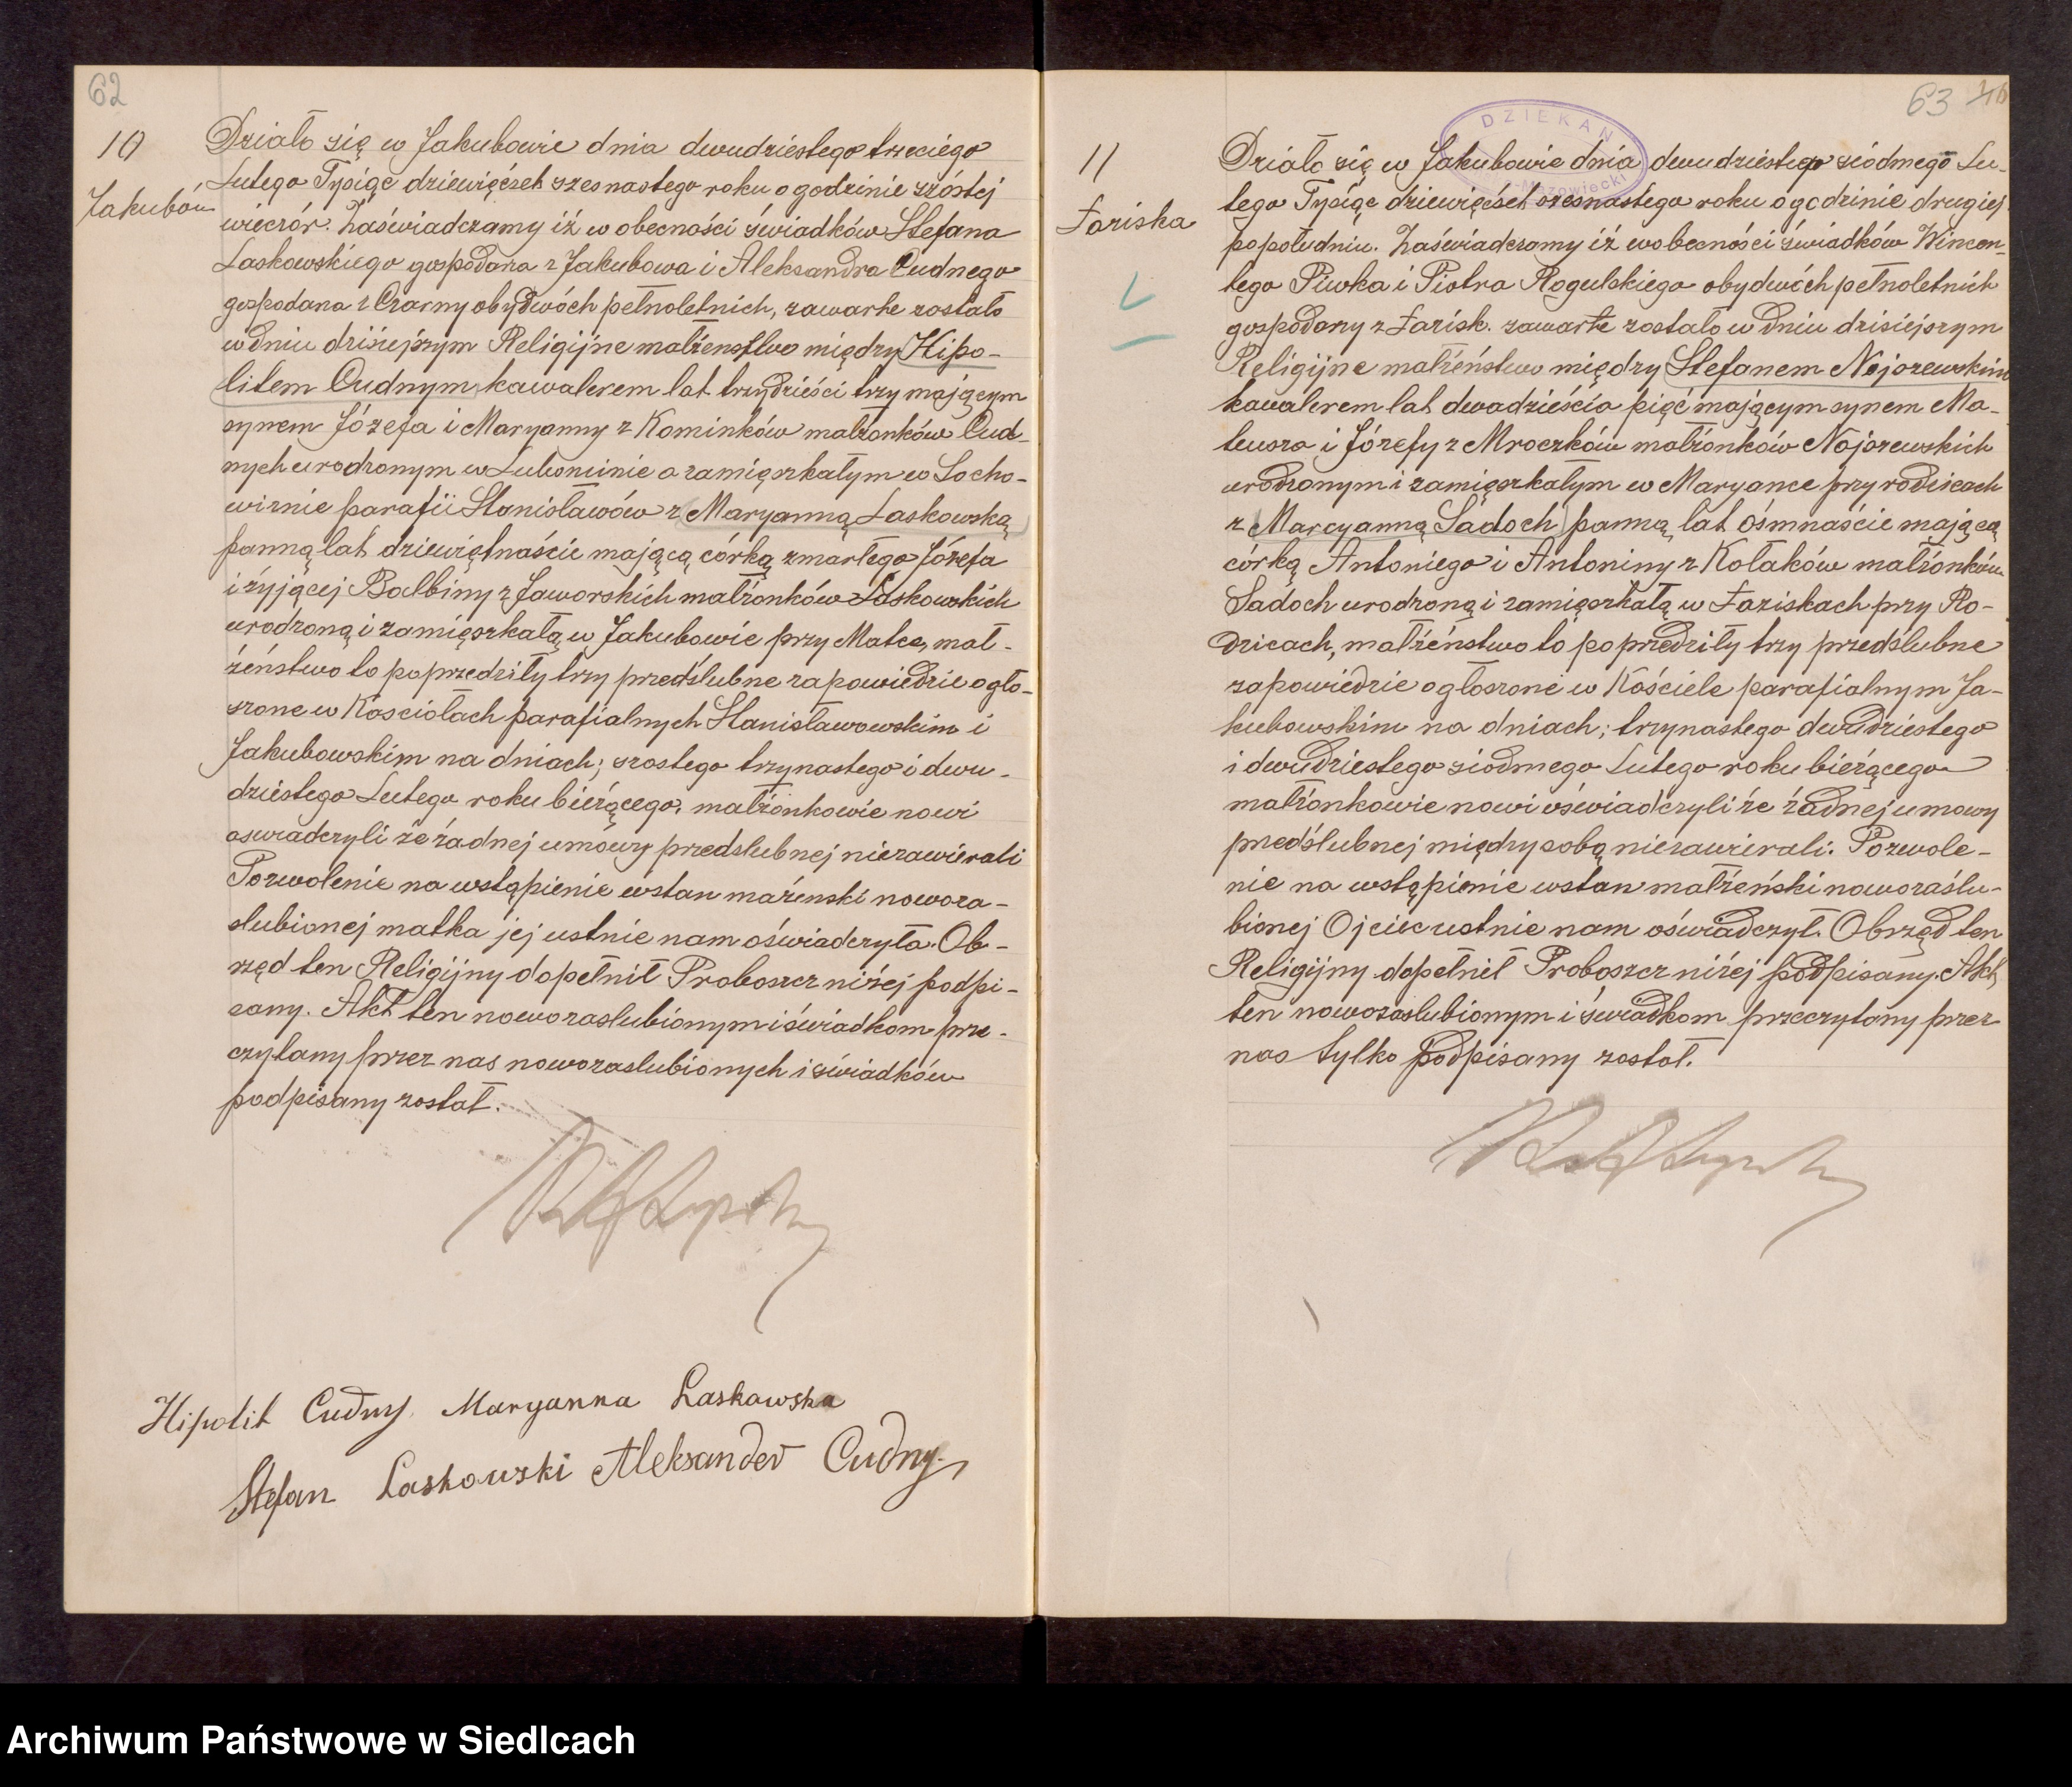 62
10
Jakubów
Działo się w Jakubowie dnia dwudziestego trzeciego
Lutego Tysiąc dziewięćset szesnastego roku o godzinie szóstej
wieczór. Zaświadczamy iż w obecności świadków Stefana
Laskowskiego gospodarza z Jakubowa i Aleksandra Cudnego
gospodarza z Czarny obydwóch pełnoletnich, zawarte zostało
w dniu dzisiejszym Religijne małżenstwo między Hipo-
litem Cudnym kawalerem lat trzydzieści trzy mającym
synem Józefa i Maryanny z Kominków małżonków Cud-
nych urodzonym w Lubominie a zamięszkałym w Socho-
wiznie parafii Stanisławów z Maryanną Laskowską
panną lat dziewiętnaście mającą córką zmarłego Józefa
i żyjącej Balbiny z Jaworskich małżonków Laskowskich
urodzoną i zamięszkałą w Jakubowie przy Matce, mał-
żeństwo to poprzedziły trzy przedślubne zapowiedzie ogło-
szone w Kosciołach parafialnych Stanisławowskim i
Jakubowskim na dniach; szostego trzynastego i dwu-
dziestego Lutego roku bieżącego. małżonkowie nowi
oswiadczyli że żadnej umówy przedslubnej niezawierali
Pozwolenie na wstąpienie wstan mażenski nowoza-
slubionej matka jej ustnie nam oświadczyła. Ob-
rzęd ten Religijny dopełnił Proboszcz niżej podpi-
sany. Akt ten nowozaslubionym i świadkom prze-
czytany przez nas nowozaslubionych i świadków
podpisany został.
Hipolit Cudny Maryanna Laskowska
Stefan Laskowski Aleksander Cudny
63
11
Łaziska
DZIEKAN
Działo się w Jakubowie dnia dwudziestego siódmego Lu-
tego Tysiąc dziewięćset szesnastego roku o godzinie drugiej
popołudniu. Zaświadczamy iż wobecności świadków Wincen-
tego Piwka i Piotra Rogulskiego obydwóch pełnoletnich
gospodarzy z Łazisk. zawarte zostało w dniu dzisiejszym
Religijne małżeństwo między Stefanem Nojszewskim
kawalerem lat dwadzieścia pięć mającym synem Ma-
teusza i Józefy z Mroczków małżonków Nojszewskich
urodzonym i zamięszkałym w Maryance przy rodzicach
z Marcyanną Sadoch panną lat ośmnaście mającą
córką Antoniego i Antoniny z Kołaków małżonków
Sadoch urodzoną i zamięszkałą w Łaziskach przy Ro-
dzicach, małżeństwo to poprzedziły trzy przedślubne
zapowiedzie ogłoszone w Kościele parafialnym Ja-
kubowskim na dniach; trzynastego dwudziestego
i dwudziestego siodmego Lutego roku bieżącego
małżonkowie nowi oświadczyli że żadnej umowy
przedślubnej między sobą niezawierali. Pozwole-
nie na wstąpienie wstan małżeński nowozaślu-
bionej Ojciec ustnie nam oświadczył. Obrzęd ten
Religijny dopełnił Proboszcz niżej podpisany. Akt
ten nowozaslubionym i świadkom przeczytany przez
nas tylko podpisany został.
Archiwum Państwowe w Siedlcach